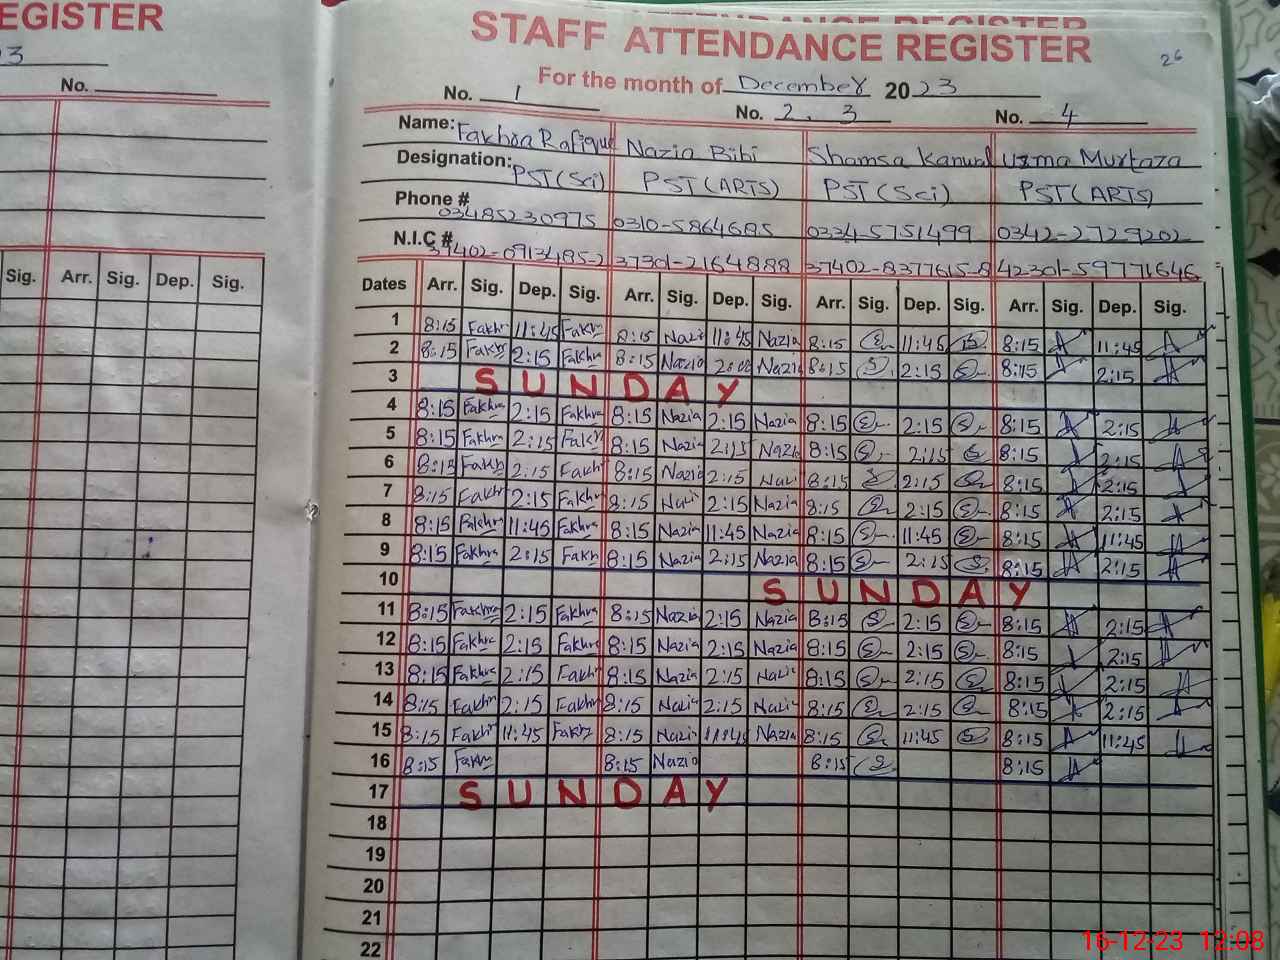 EGISTER
3
No.
Sig. Arr. Sig. Dep. Sig.
ATTENDANCE REGISTER
STAFF ATTENDANCE REGISTER
26
For the month of December 2023
No. 1 No. 2. 3 No. 4
Name: Fakhra Rafique Nazia Bibi Shamsa Kanwal Uzma Murtaza
Designation: PST(Sci) PST(ARTS) PST(Sci) PST(ARTS)
Phone # 03485230975 0310-5864685 0334-5751499 0342-2729202
N.I.C # 37402-0913485-2 37301-2164888 37402-8377615-8 42301-59771646
Dates Arr. Sig. Dep. Sig. Arr. Sig. Dep. Sig. Arr. Sig. Dep. Sig. Arr. Sig. Dep. Sig.
1 8:15 Fakhr 11:45 Fakhr 8:15 Nazi 11:45 Nazia 8:15 11:45 8:15 11:45
2 8:15 Fakhr 2:15 Fakhra 8:15 Nazia Nazia 8:15 2:15 8:15 2:15
3 SUNDAY
4 8:15 Fakhra 2:15 Fakhra 8:15 Nazia 2:15 Nazia 8:15 2:15 8:15 2:15
5 8:15 Fakhra 2:15 Fakhr 8:15 Nazia 2:15 Nazia 8:15 2:15 8:15 2:15
6 8:15 Fakhr 2:15 Fakhr 8:15 Nazia 2:15 Nazi 8:15 2:15 8:15 2:15
7 8:15 Fakhr 2:15 Fakhra 8:15 Nazi 2:15 Nazia 8:15 2:15 8:15 2:15
8 8:15 Fakhra 11:45 Fakhra 8:15 Nazia 11:45 Nazia 8:15 11:45 8:15 11:45
9 8:15 Fakhra 2:15 Fakh 8:15 Nazia 2:15 Nazia 8:15 2:15 8:15 2:15
10 SUNDAY
11 8:15 Fakhra 2:15 Fakhra 8:15 Nazia 2:15 Nazia 8:15 2:15 8:15 2:15
12 8:15 Fakhra 2:15 Fakhra 8:15 Nazia 2:15 Nazia 8:15 2:15 8:15 2:15
13 8:15 Fakhra 2:15 Fakhr 8:15 Nazia 2:15 Nazi 8:15 2:15 8:15 2:15
14 8:15 Fakhr 2:15 Fakhr 8:15 Nazi 2:15 Nazi 8:15 2:15 8:15 2:15
15 8:15 Fakhr 11:45 Fakhr 8:15 Nazi 11:45 Nazia 8:15 11:45 8:15 11:45
16 8:15 Fakhr 8:15 Nazia 8:15 8:15
17 SUNDAY
18
19
20
21
22
16-12-23 12:08